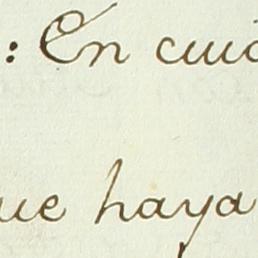 : En cuid
ue haya